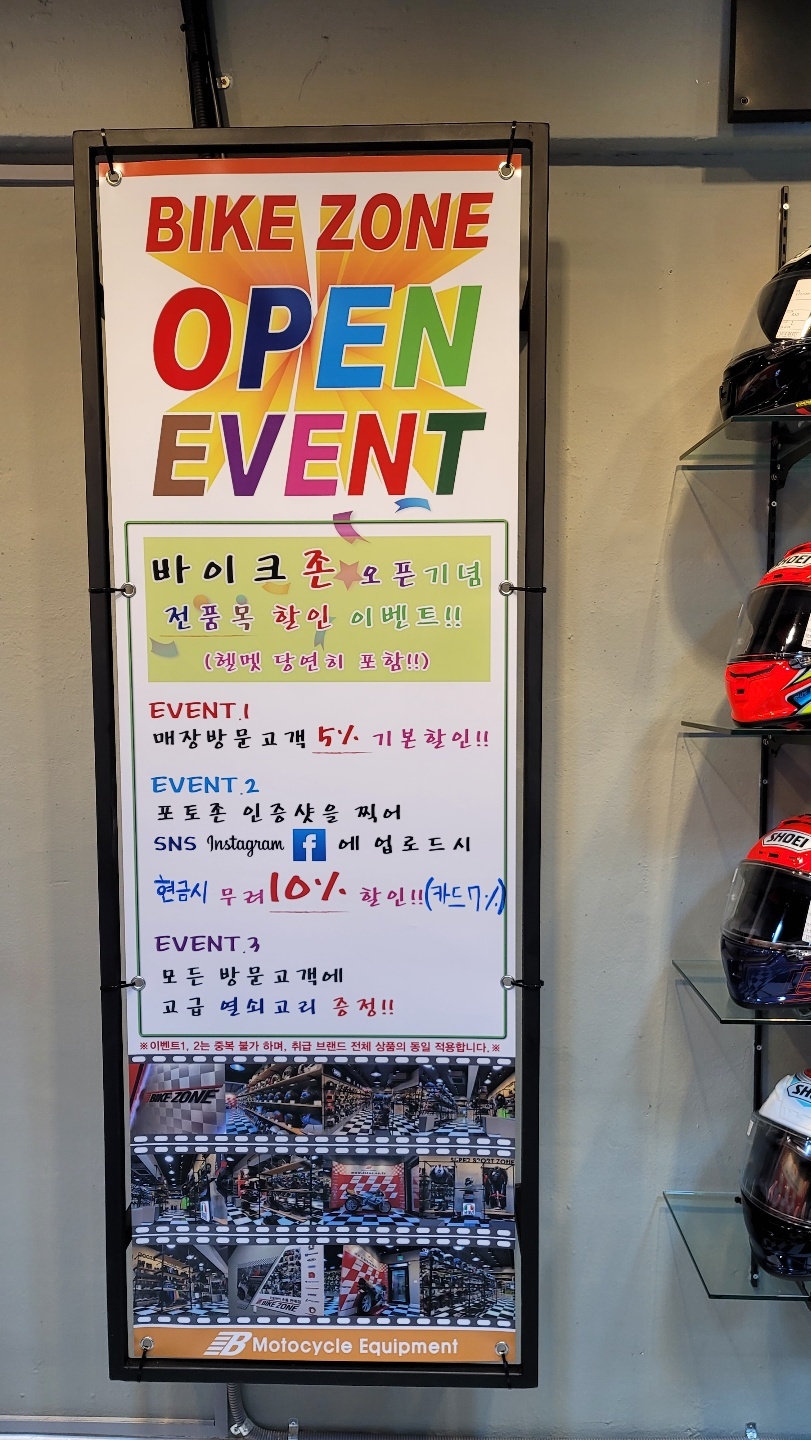 BIKE ZONE
OPEN
EVENT
바이크존★오픈기념
전품목 할인 이벤트!!
(헬멧 당연히 포함!!)
EVENT.1
매장방문고객 5% 기본할인!!
EVENT.2
포토존 인증샷을 찍어
SNS Instagram f 에 업로드시
현금시 무려 10% 할인!! (카드 7%)
EVENT.3
모든 방문고객에
고급 열쇠고리 증정!!
※이벤트1, 2는 중복 불가 하며, 취급 브랜드 전체 상품의 동일 적용합니다.※
BIKE ZONE
SUPER SPORT ZONE
BIKE ZONE
B Motocycle Equipment
SHOEI
SHOEI
SH